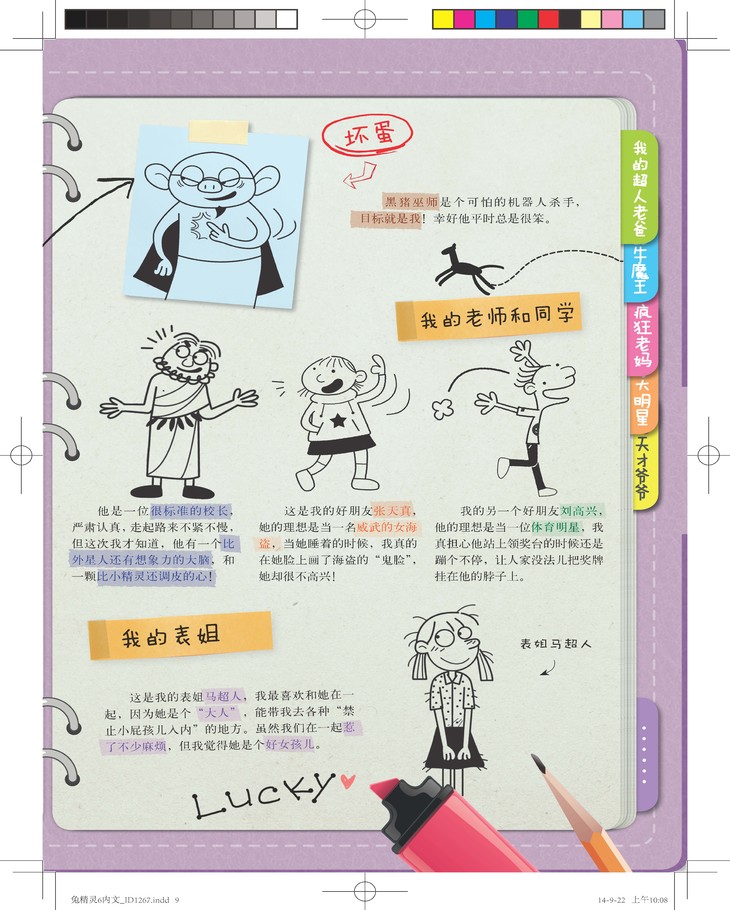 坏蛋
黑猪巫师是个可怕的机器人杀手，
目标就是我！幸好他平时总是很笨。
我的超人老爸
牛魔王
疯狂老妈
大明星
天才爷爷
我的老师和同学
他是一位很标准的校长，
严肃认真，走起路来不紧不慢，
但这次我才知道，他有一个比
外星人还有想象力的大脑，和
一颗比小精灵还调皮的心！
这是我的好朋友张天真，
她的理想是当一名威武的女海
盗，当她睡着的时候，我真的
在她脸上画了海盗的“鬼脸”，
她却很不高兴！
我的另一个好朋友刘高兴，
他的理想是当一位体育明星，我
真担心他站上领奖台的时候还是
蹦个不停，让人家没法儿把奖牌
挂在他的脖子上。
我的表姐
表姐马超人
这是我的表姐马超人，我最喜欢和她在一
起，因为她是个“大人”，能带我去各种“禁
止小屁孩儿入内”的地方。虽然我们在一起惹
了不少麻烦，但我觉得她是个好女孩儿。
LUCKY
兔精灵6内文_ID1267.indd 9
14-9-22 上午10:08